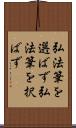 弘法筆を
選ばず弘
法筆を択
ばず